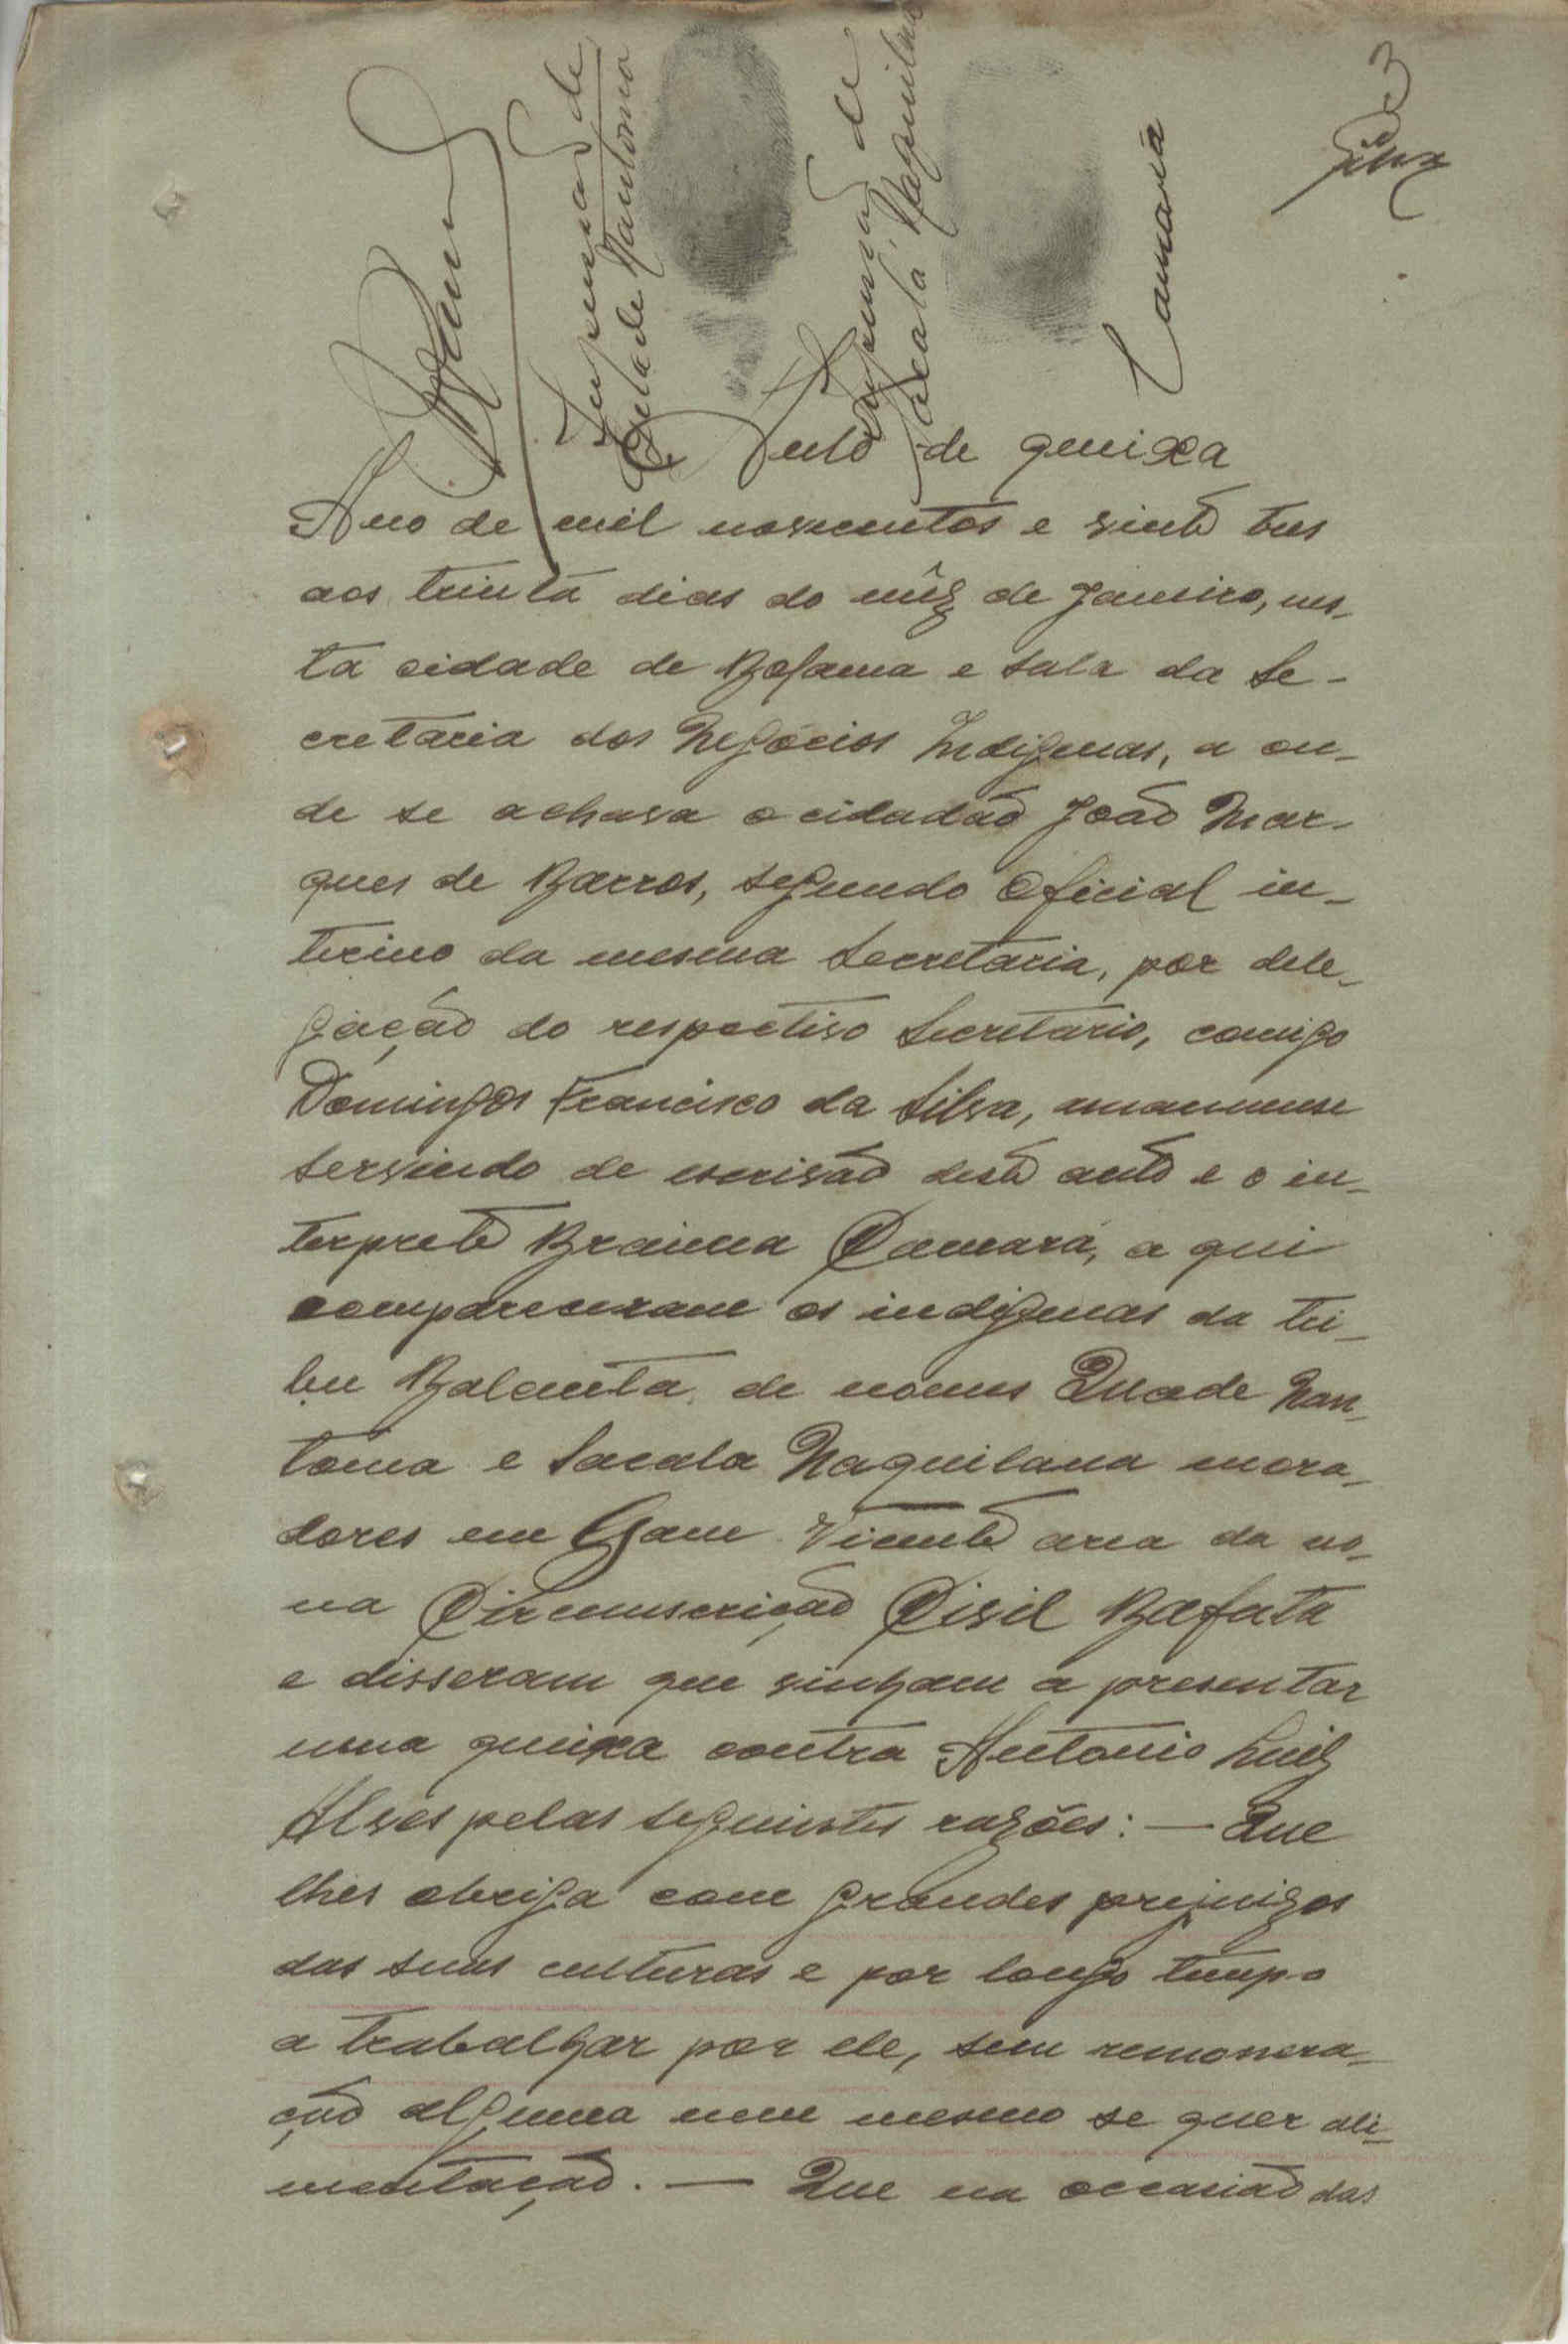 3
Silva
Barros
Impressão de
Quade Nantoma
Impressão de
Sacalá Naquilana
Camará
Auto de queixa
Ano de mil novecentos e vinte tres
aos trinta dias do mêz de Janeiro, nes-
ta cidade de Bolama e sala da Se-
cretaria dos Negócios Indigenas, a on-
de se achava o cidadão João Mar-
ques de Barros, segundo Oficial in-
terino da mesma Secretaria, por dele-
gação do respectivo Secretário, comigo
Domingos Francisco da Silva, amanuense
servindo de escrivão deste auto e o in-
terprete Braima Camará, a qui
compareceram os indigenas da tri-
bu Balanta, de nomes Quade Nan-
toma e Sacala Naquilana mora-
dores em Gam Vicente area da no-
na Circunscrição Civil Bafata
e disseram que vinham a presentar
uma queixa contra Antonio Luiz
Alves pelas seguintes razões: — Que
lhes obriga com grandes prejuizos
das suas culturas e por longo tempo
a trabalhar por ele, sem remonera-
ção alguma nem mesmo se quer ali-
mentação. — Que na occasião das